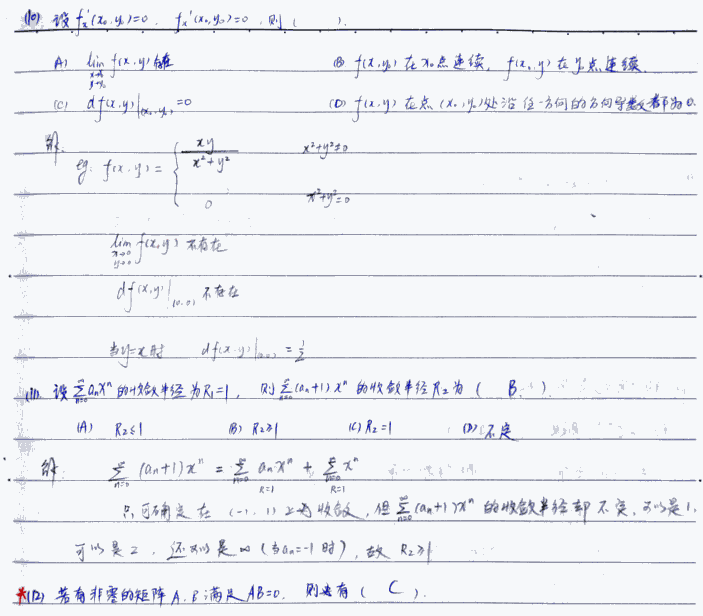 (10) 设 f'x(x₀,y₀)=0, f'x(x₀,y₀)=0, 则 ( ).
(A) lim x→x₀ y→y₀ f(x,y) 存在
(B) f(x,y₀) 在 x₀ 点连续, f(x₀,y) 在 y₀ 点连续
(C) df(x,y)|(x₀,y₀) =0
(D) f(x,y) 在点 (x₀,y₀) 处沿任一方向的方向导数都为 0.
解:
eg: f(x,y) = { xy/(x²+y²) x²+y²≠0
0 x²+y²=0
lim x→0 y→0 f(x,y) 不存在
df(x,y)|(0,0) 不存在
当y=x时 df(x,y)|(0,0) = 1/2
(11) 设 ∑n=0^∞ aₙxⁿ 的收敛半径为 R₁=1, 则 ∑n=0^∞ (aₙ+1)xⁿ 的收敛半径 R₂ 为 ( B. )
(A) R₂≤1 (B) R₂≥1 (C) R₂=1 (D) 不定
解: ∑n=0^∞ (aₙ+1)xⁿ = ∑n=0^∞ aₙxⁿ + ∑n=0^∞ xⁿ
R=1 R=1
只可确定在 (-1, 1) 上为收敛, 但 ∑n=0^∞ (aₙ+1)xⁿ 的收敛半径却不定, 可以是1,
可以是 2, 还可以是 ∞ (当aₙ=-1时), 故 R₂≥1
*(12) 若有非零的矩阵 A, B 满足 AB=0, 则必有 ( C ).